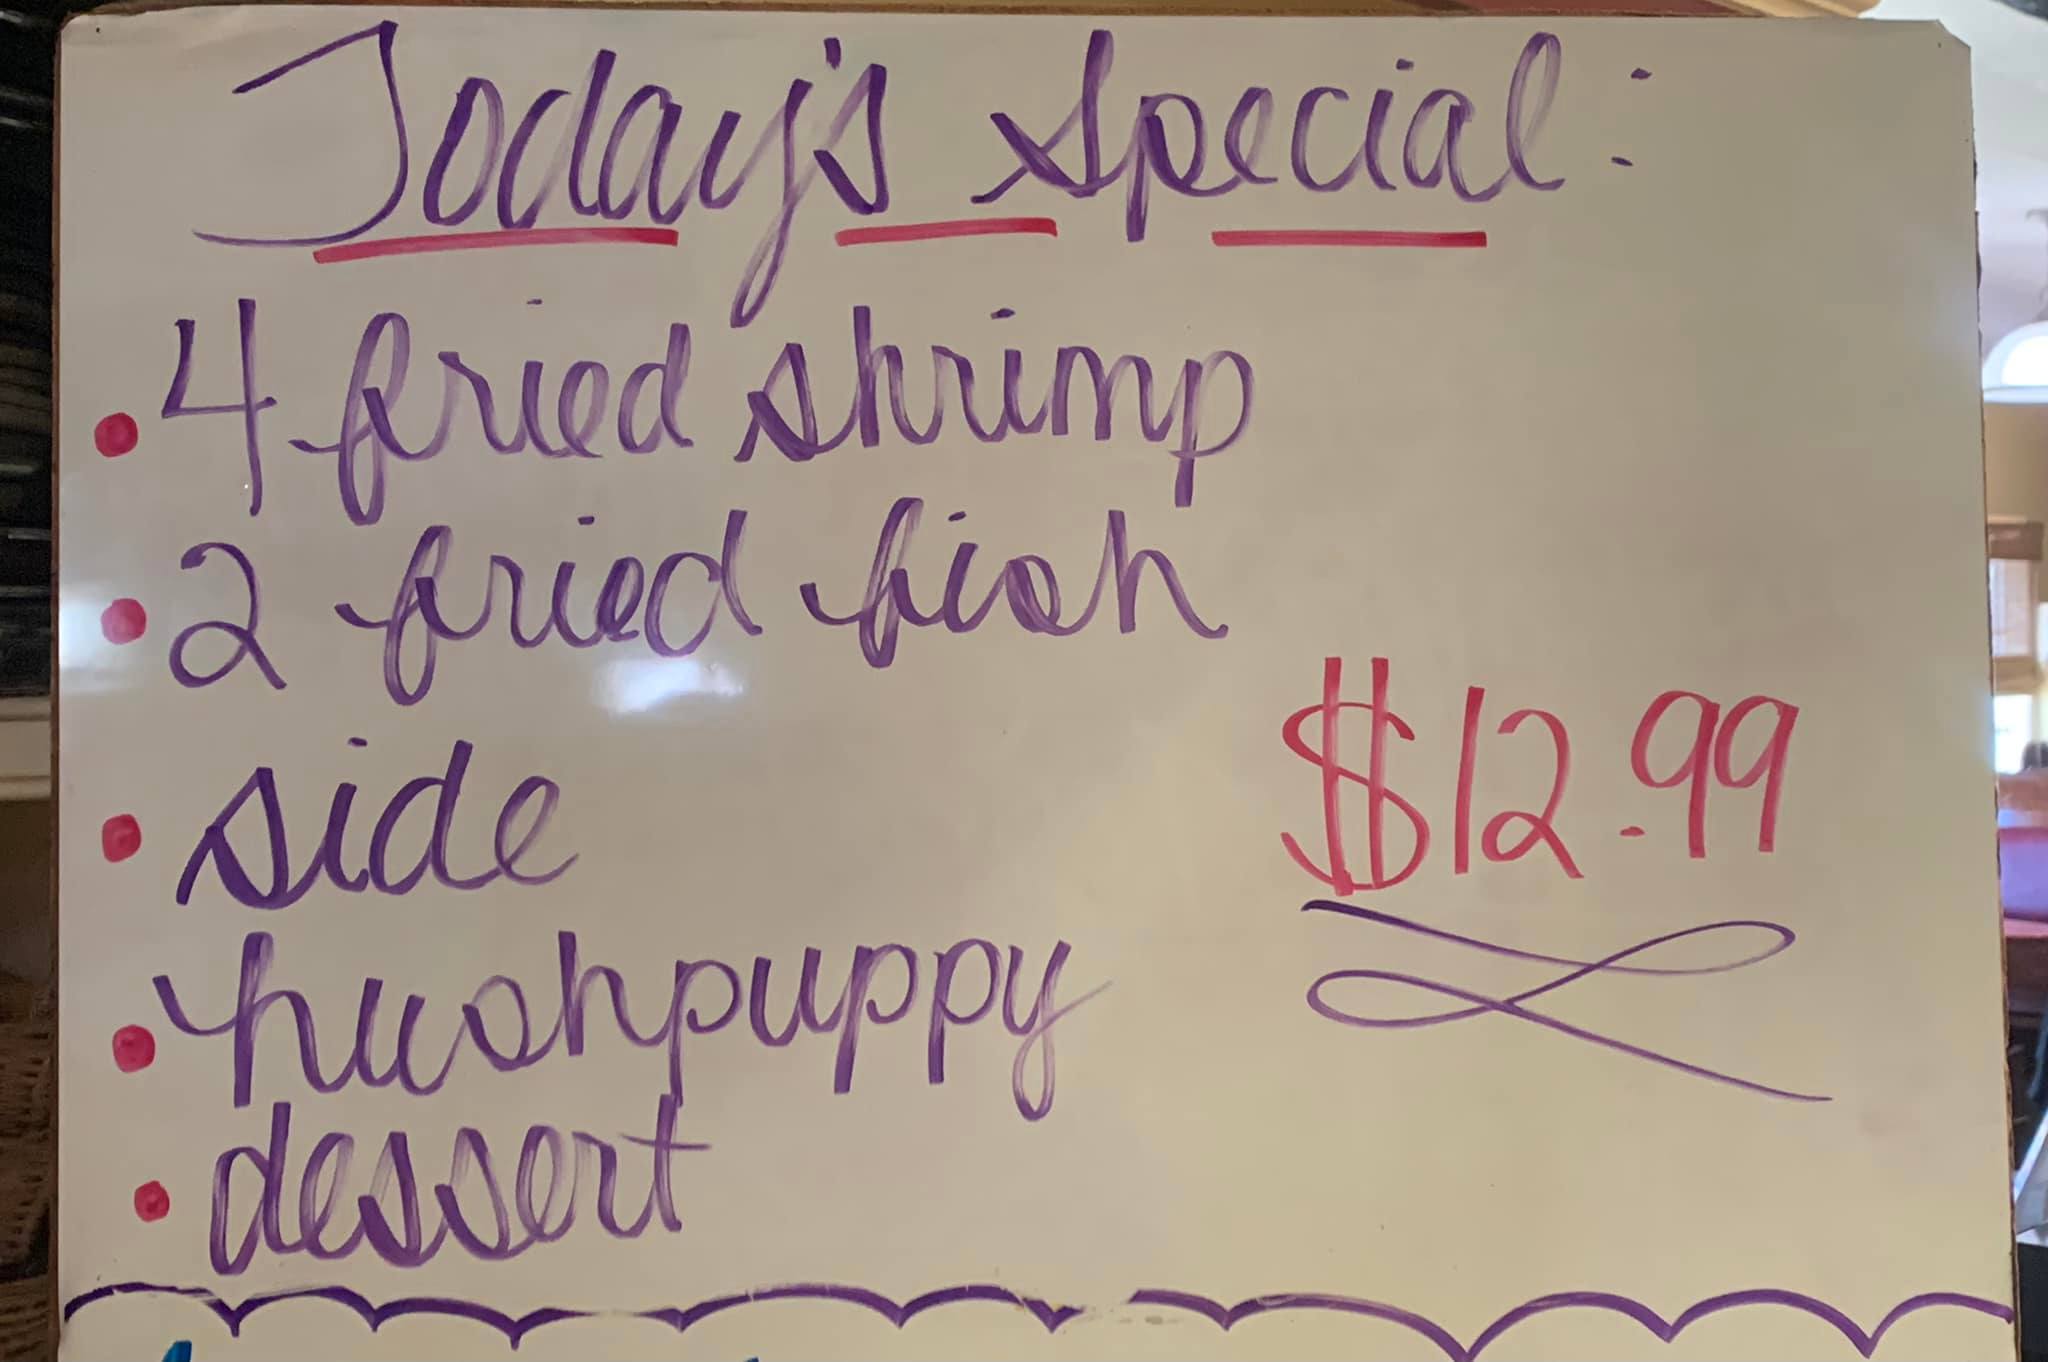 Today's Special:
• 4 fried shrimp
• 2 fried fish
• side
$12.99
• hushpuppy
• dessert